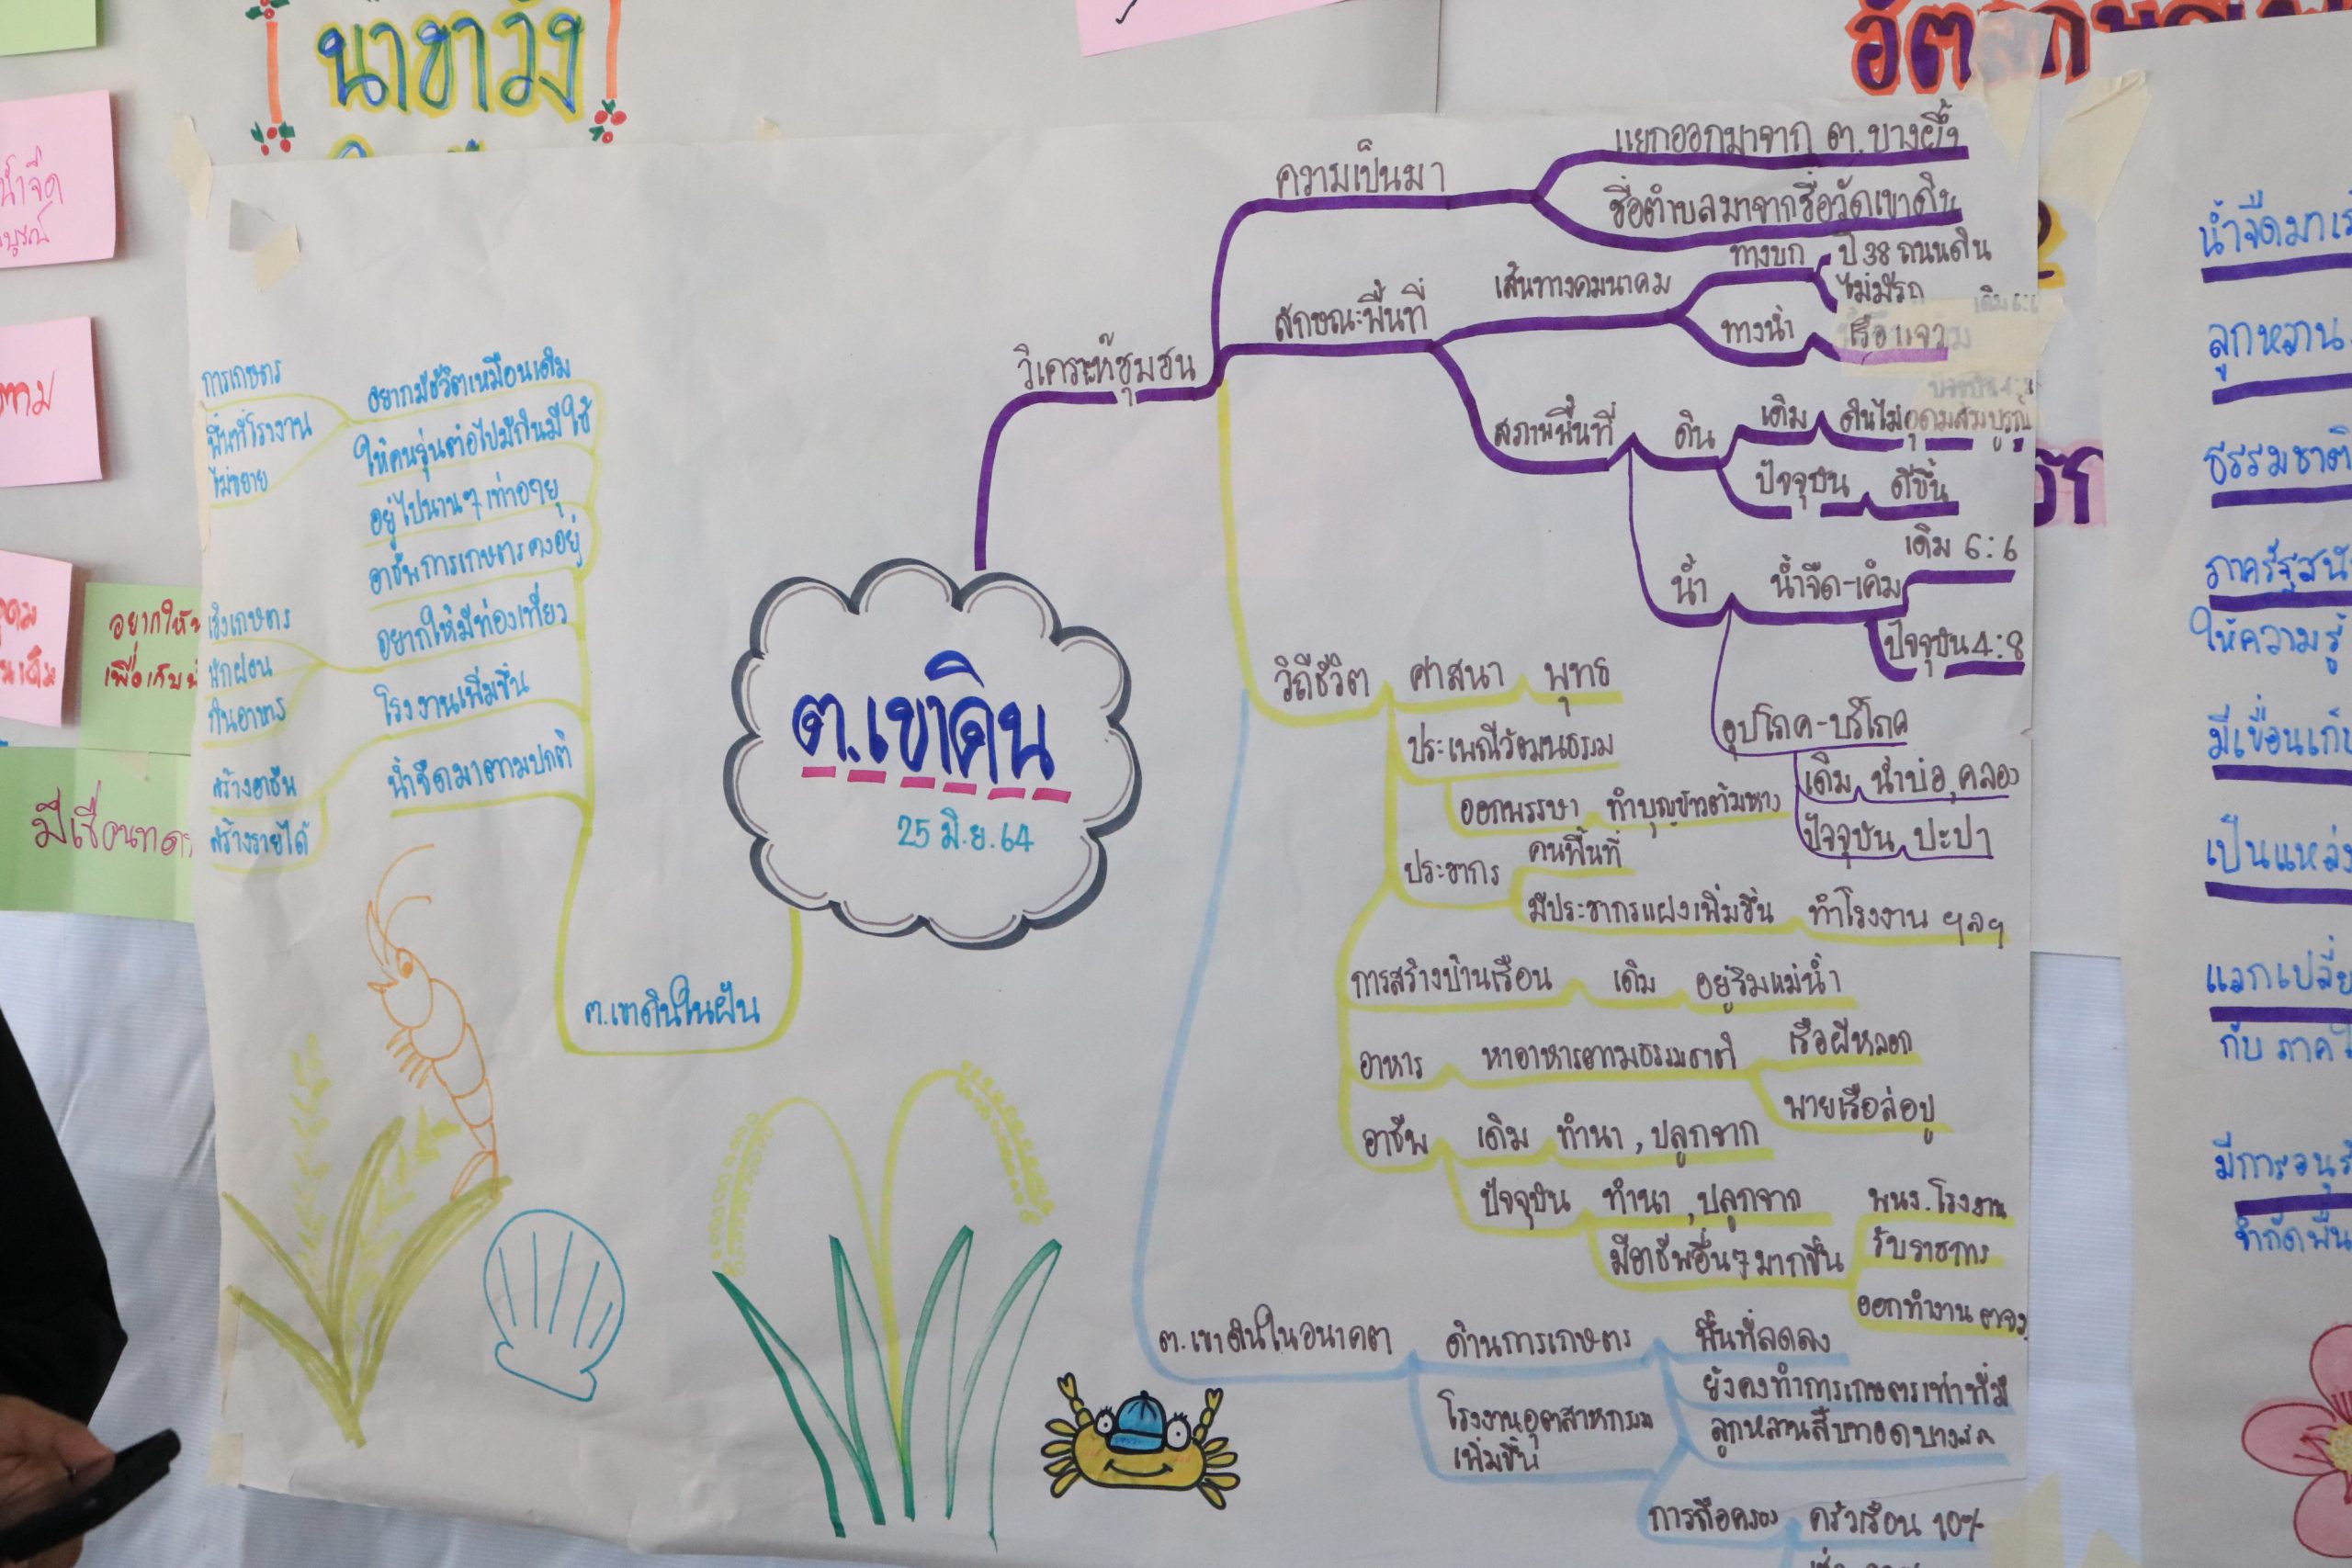 นาขาวัง
น้ำจืด
อยากให้
มีเขื่อนทด
ต.เขาดิน
25 มิ.ย.64
วิเคราะห์ชุมชน
ความเป็นมา
แยกออกมาจาก ต.บางผึ้ง
ชื่อตำบลมาจากชื่อวัดเขาดิน
ลักษณะพื้นที่
เส้นทางคมนาคม
ทางบก
ปี 38 ถนนดิน
ไม่มีรถ
ทางน้ำ
เรือแจว
สภาพพื้นที่
ดิน
เดิม
ดินไม่อุดมสมบูรณ์
ปัจจุบัน ดีขึ้น
น้ำ
น้ำจืด-เค็ม
เดิม 6:6
ปัจจุบัน 4:8
อุปโภค-บริโภค
เดิม น้ำบ่อ,คลอง
ปัจจุบัน ปะปา
วิถีชีวิต
ศาสนา พุทธ
ประเพณีวัฒนธรรม
ออกพรรษา ทำบุญข้าวต้มหาง
ประชากร
คนพื้นที่
มีประชากรแฝงเพิ่มขึ้น ทำโรงงาน ฯลฯ
การสร้างบ้านเรือน เดิม อยู่ริมแม่น้ำ
อาหาร หาอาหารตามธรรมชาติ
เรือผีหลอก
พายเรือล่อปู
อาชีพ เดิม ทำนา , ปลูกจาก
ปัจจุบัน ทำนา , ปลูกจาก
มีอาชีพอื่นๆมากขึ้น
พนง.โรงงาน
รับราชการ
ออกทำงาน ตจว.
ต.เขาดินในอนาคต
ด้านการเกษตร
พื้นที่ลดลง
ยังคงทำการเกษตรเท่าที่มี
ลูกหลานสืบทอดบาง
โรงงานอุตสาหกรรม
เพิ่มขึ้น
การถือครอง ครัวเรือน 10%
ต.เขาดินในฝัน
อยากมีชีวิตเหมือนเดิม
การเกษตร
พื้นที่โรงงาน
ไม่ขยาย
ให้คนรุ่นต่อไปมีกินมีใช้
อยู่ไปนานๆ เท่าอายุ
อาชีพการเกษตรคงอยู่
อยากให้มีท่องเที่ยว
เชิงเกษตร
พักผ่อน
กินอาหาร
โรงงานเพิ่มขึ้น
สร้างอาชีพ
สร้างรายได้
น้ำจืดมาตามปกติ
น้ำจืดมา
ลูกหลาน
ธรรมชาติ
ให้ความรู้
เป็นแหล่ง